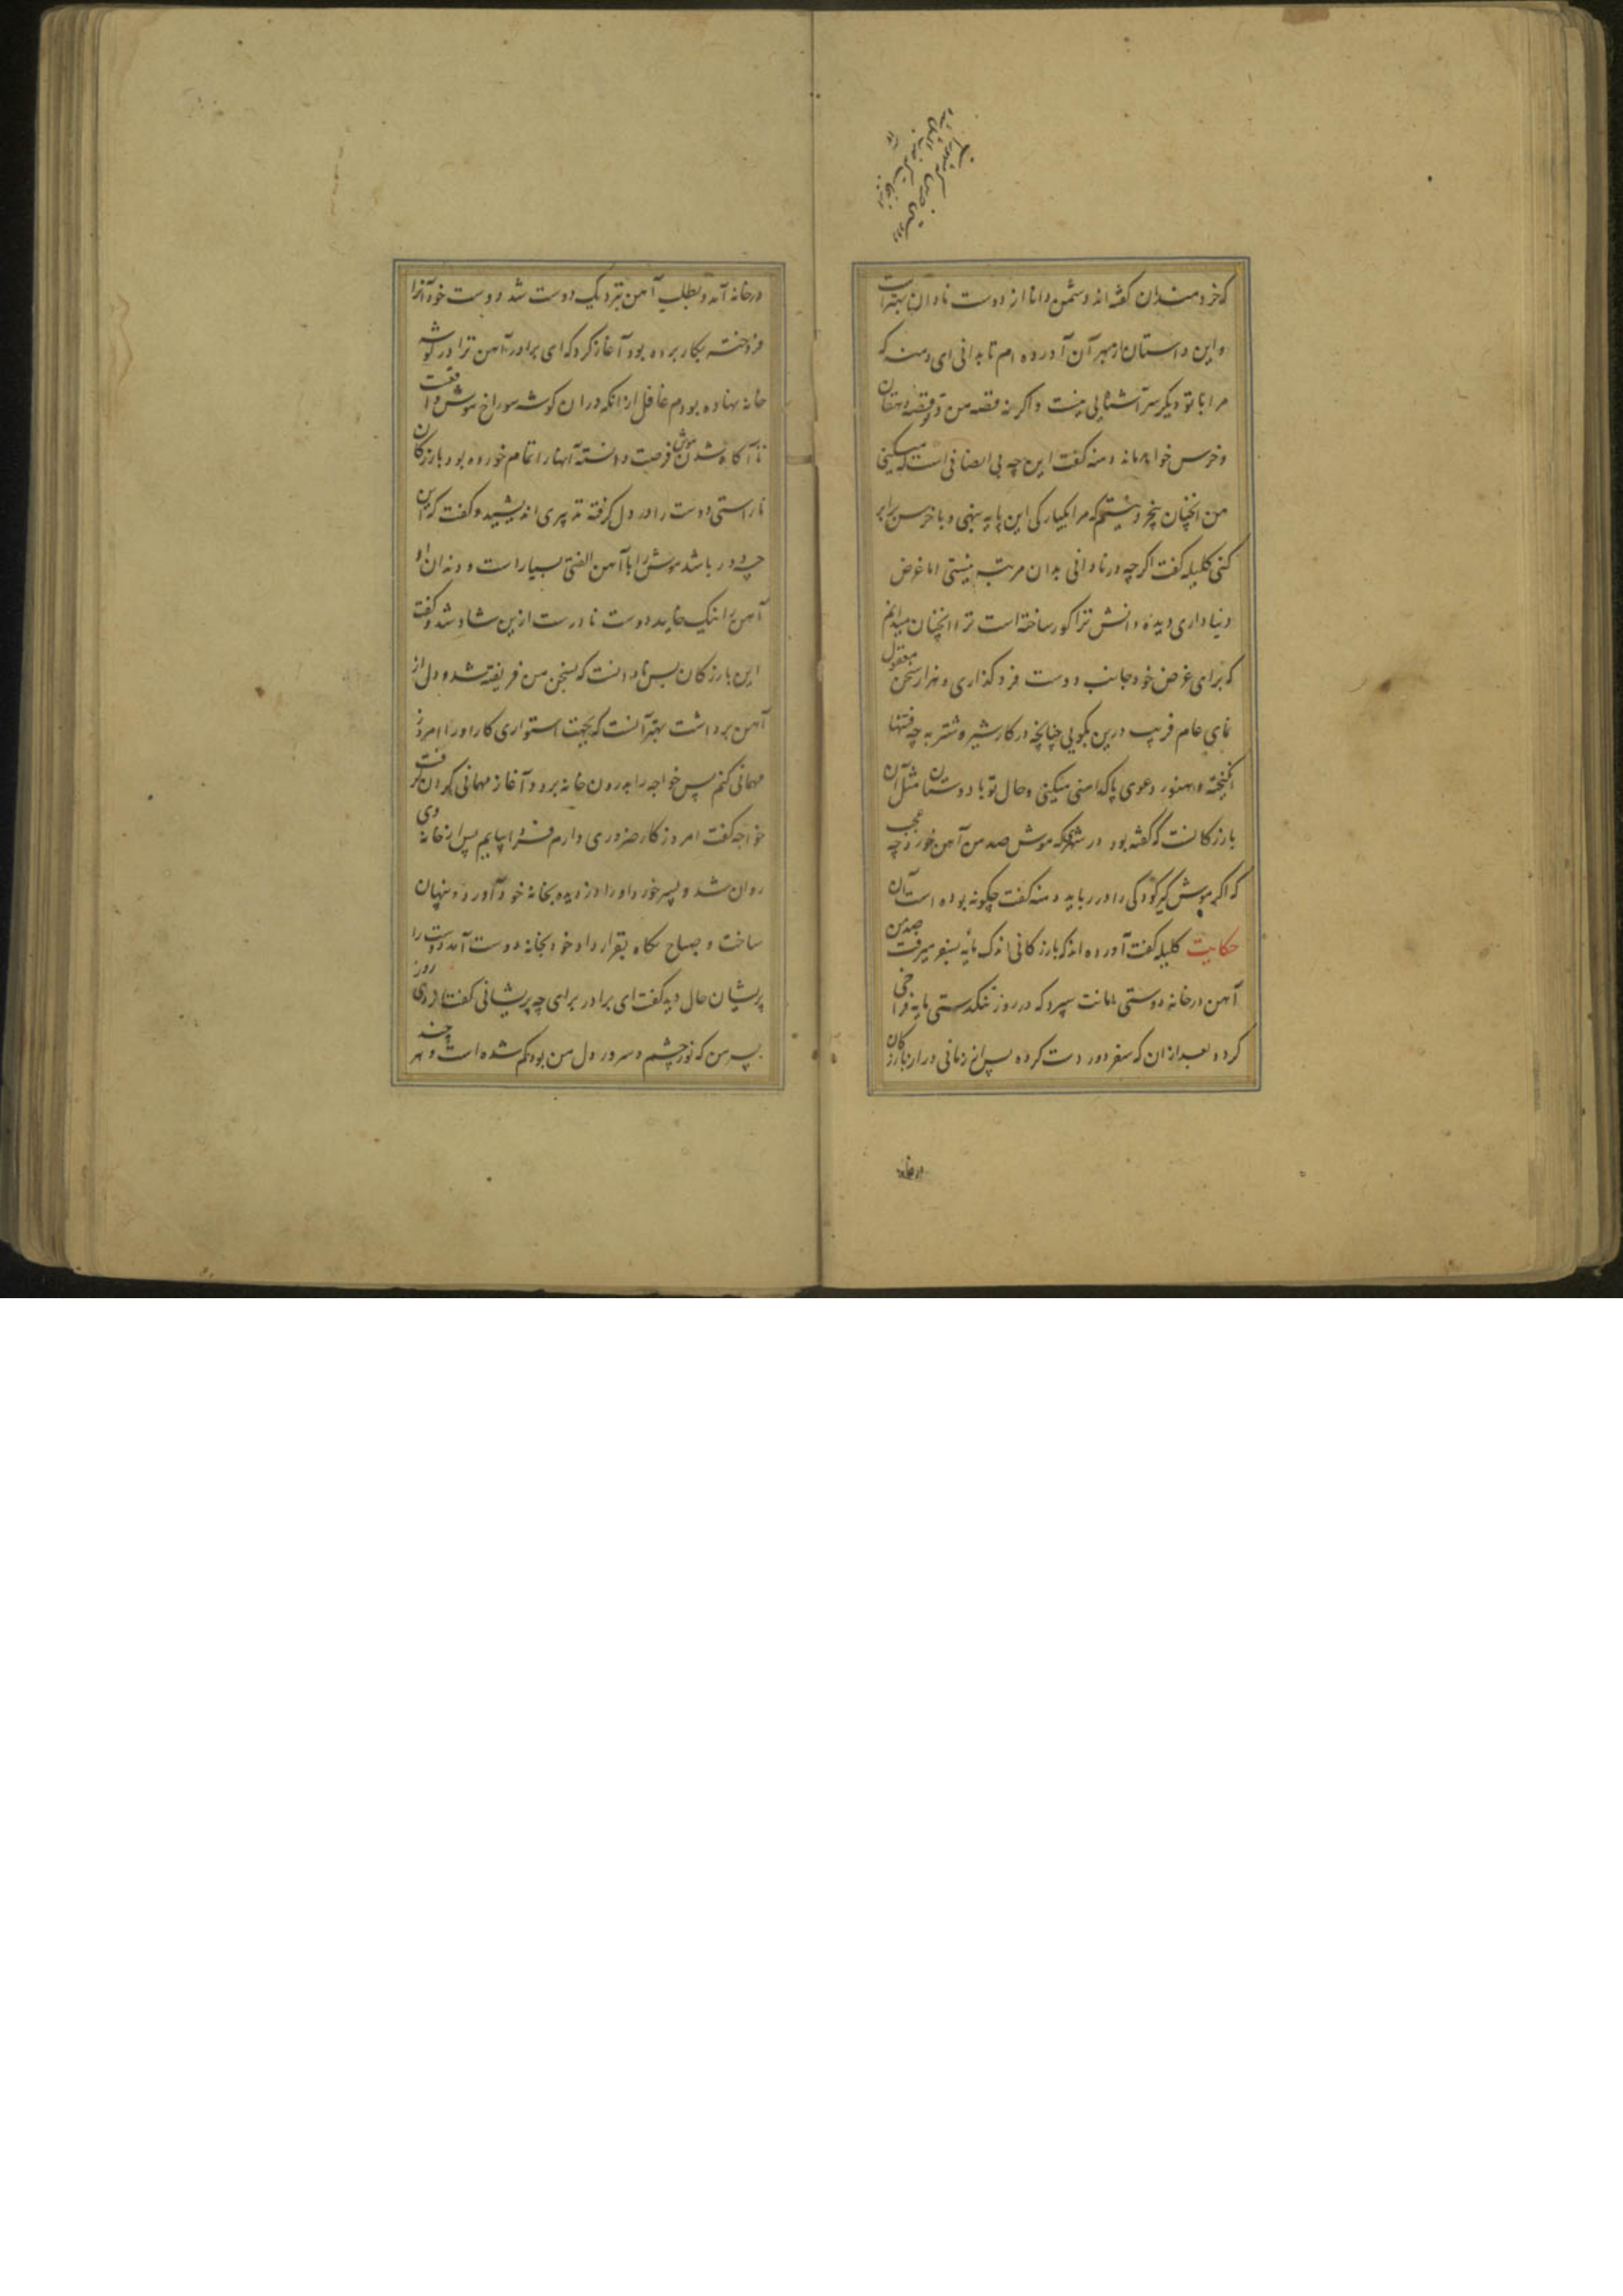 که خردمندان گفته‌اند دشمن دانا از دوست نادان بهتر است
و این داستان از بهر آن آورده‌ام تا بدانی ای دمنه که
مرا با تو دیگر سر آشنایی نیست و اگر نه قصه من و تو قصه دهقان
و خرس خواهد ماند دمنه گفت این چه بی انصافی است که میکنی
من آنچنان بیخرد نیستم که مرا یکبارگی این پایه بنهی و با خرس برابر
کنی کلیله گفت اگرچه در نادانی بدان مرتبه نیستی اما غرض
دنیاداری دیده دانش ترا کور ساخته است ترا آنچنان میدانم
که برای غرض خود جانب دوست فروگذاری و هزار سخن معقول
نمای عام فریب درین بگویی چنانچه در کار شیر و شتربه چه فتنها
انگیخته و هنوز دعوی پاکدامنی میکنی و حال تو با دوستان مثل آن
بازرگانست که گفته بود در شهری که موش صد من آهن خورد چه عجب
که اگر موش گیر کودکی را در رباید دمنه گفت چگونه بوده است آن
حکایت کلیله گفت آورده‌اند که بازرگانی اندک مایه بسفر میرفت صد من
آهن در خانه دوستی امانت سپرد که در روز تنگدستی مایه فراخی
کرده بعد از آن که سفر دور دست کرده پس از زمانی دراز بازرگان
در خانه
در خانه آمد و بطلب آهن نزدیک دوست شد دوست خود آنرا
فروخته بکار برده بود آغاز کرد که ای برادر آهن ترا در گوشه
خانه نهاده بودم غافل از آنکه در آن گوشه سوراخ موش واقعست
تا آگاه شدن موش فرصت دانسته آنها را تمام خورده بود بازرگان
ناراستی دوست را در دل گرفته تدبیری اندیشید و گفت که این
چه دور باشد موش را با آهن الفتی بسیار است و دندان او
آهن را نیک خاید دوست نادرست ازین شاد شد و گفت
این بازرگان بس نادانست که بسخن من فریفته شد و دل از
آهن برداشت بهتر آنست که بجهت استواری کار او را امروز
مهمانی کنم پس خواجه را بدرون خانه برد و آغاز مهمانی کردن گرفت
خواجه گفت امروز کار ضروری دارم فردا بیایم پس از خانه وی
روان شد و پسر خورد او را دزدیده بخانه خود آورد و پنهان
ساخت و صباح پگاه بقرارداد خود بخانه دوست آمد دوست را
پریشان حال دید گفت ای برادر برای چه پریشانی گفت از دی روز
پسر من که نور چشم و سرور دل من بود گم شده است و هر چند